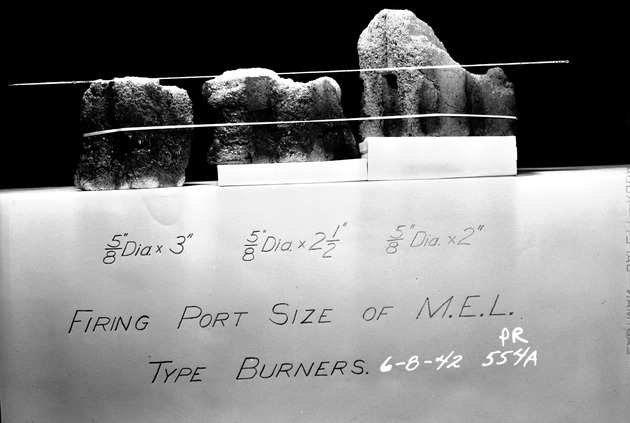 5/8" Dia. x 3" 5/8" Dia. x 2 1/2" 5/8" Dia. x 2"
FIRING PORT SIZE OF M.E.L.
TYPE BURNERS. 6-8-42 PR 554A